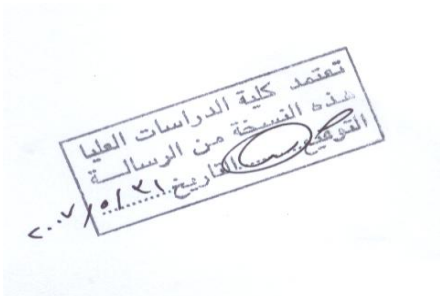 تعتمد كلية الدراسات العليا
هذه النسخة من الرسالة
التوقيع......التاريخ..........٣١/٥/٢٠٠٧